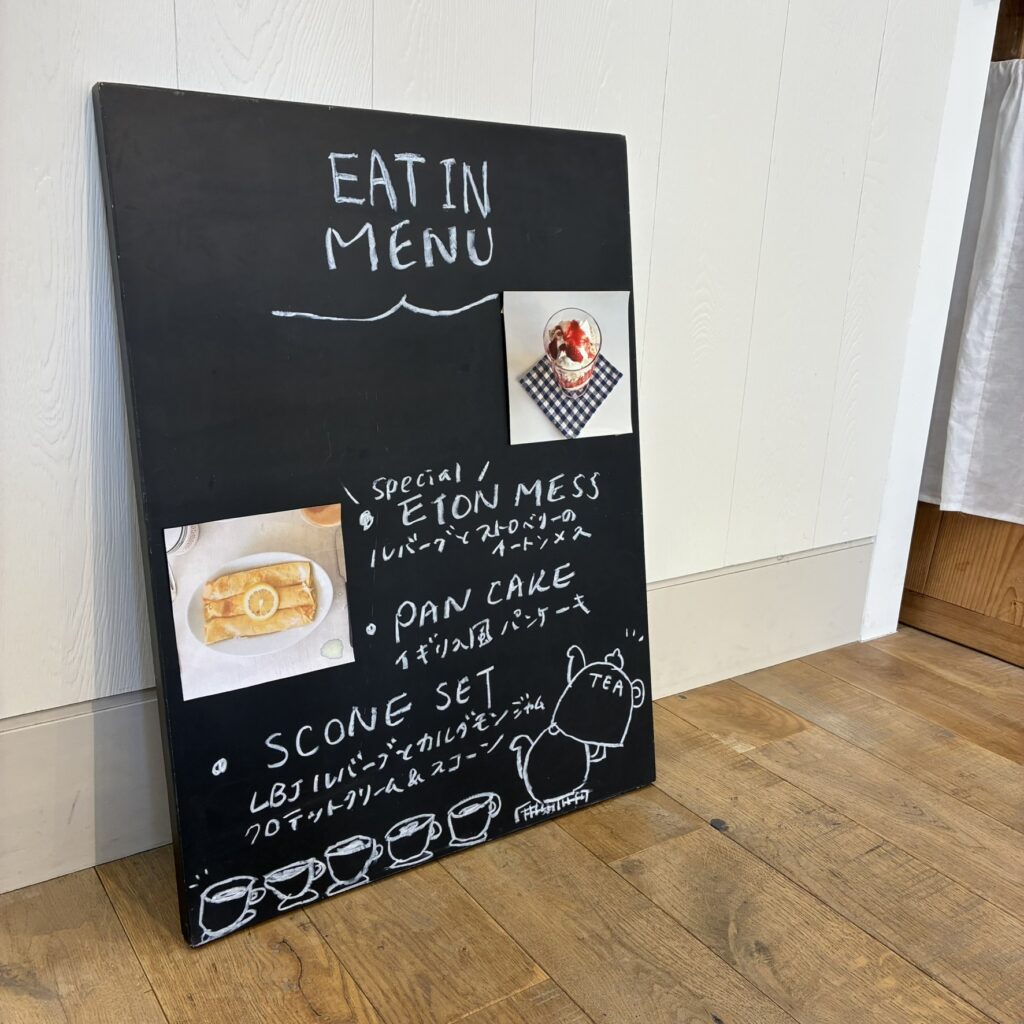 EAT IN
MENU
special
ETON MESS
ルバーブとストロベリーの
イートンメス
PAN CAKE
イギリス風パンケーキ
SCONE SET
LBJルバーブとカルダモンジャム
クロテットクリーム&スコーン
TEA